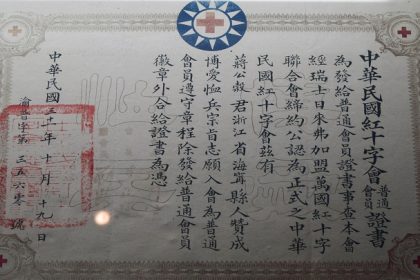 中華民國紅十字會普通會員證書
為發給普通會員證書事查本會
經瑞士日來弗加盟萬國紅十字
聯合會締約公認為正式之中華
民國紅十字會茲有
蔣公穀君浙江省海寧縣人贊成
博愛恤兵宗旨志願入會為普通
會員遵守章程除發給普通會員
徽章外合給證書為憑
中華民國年十月十九日
渝普字第三五六零號